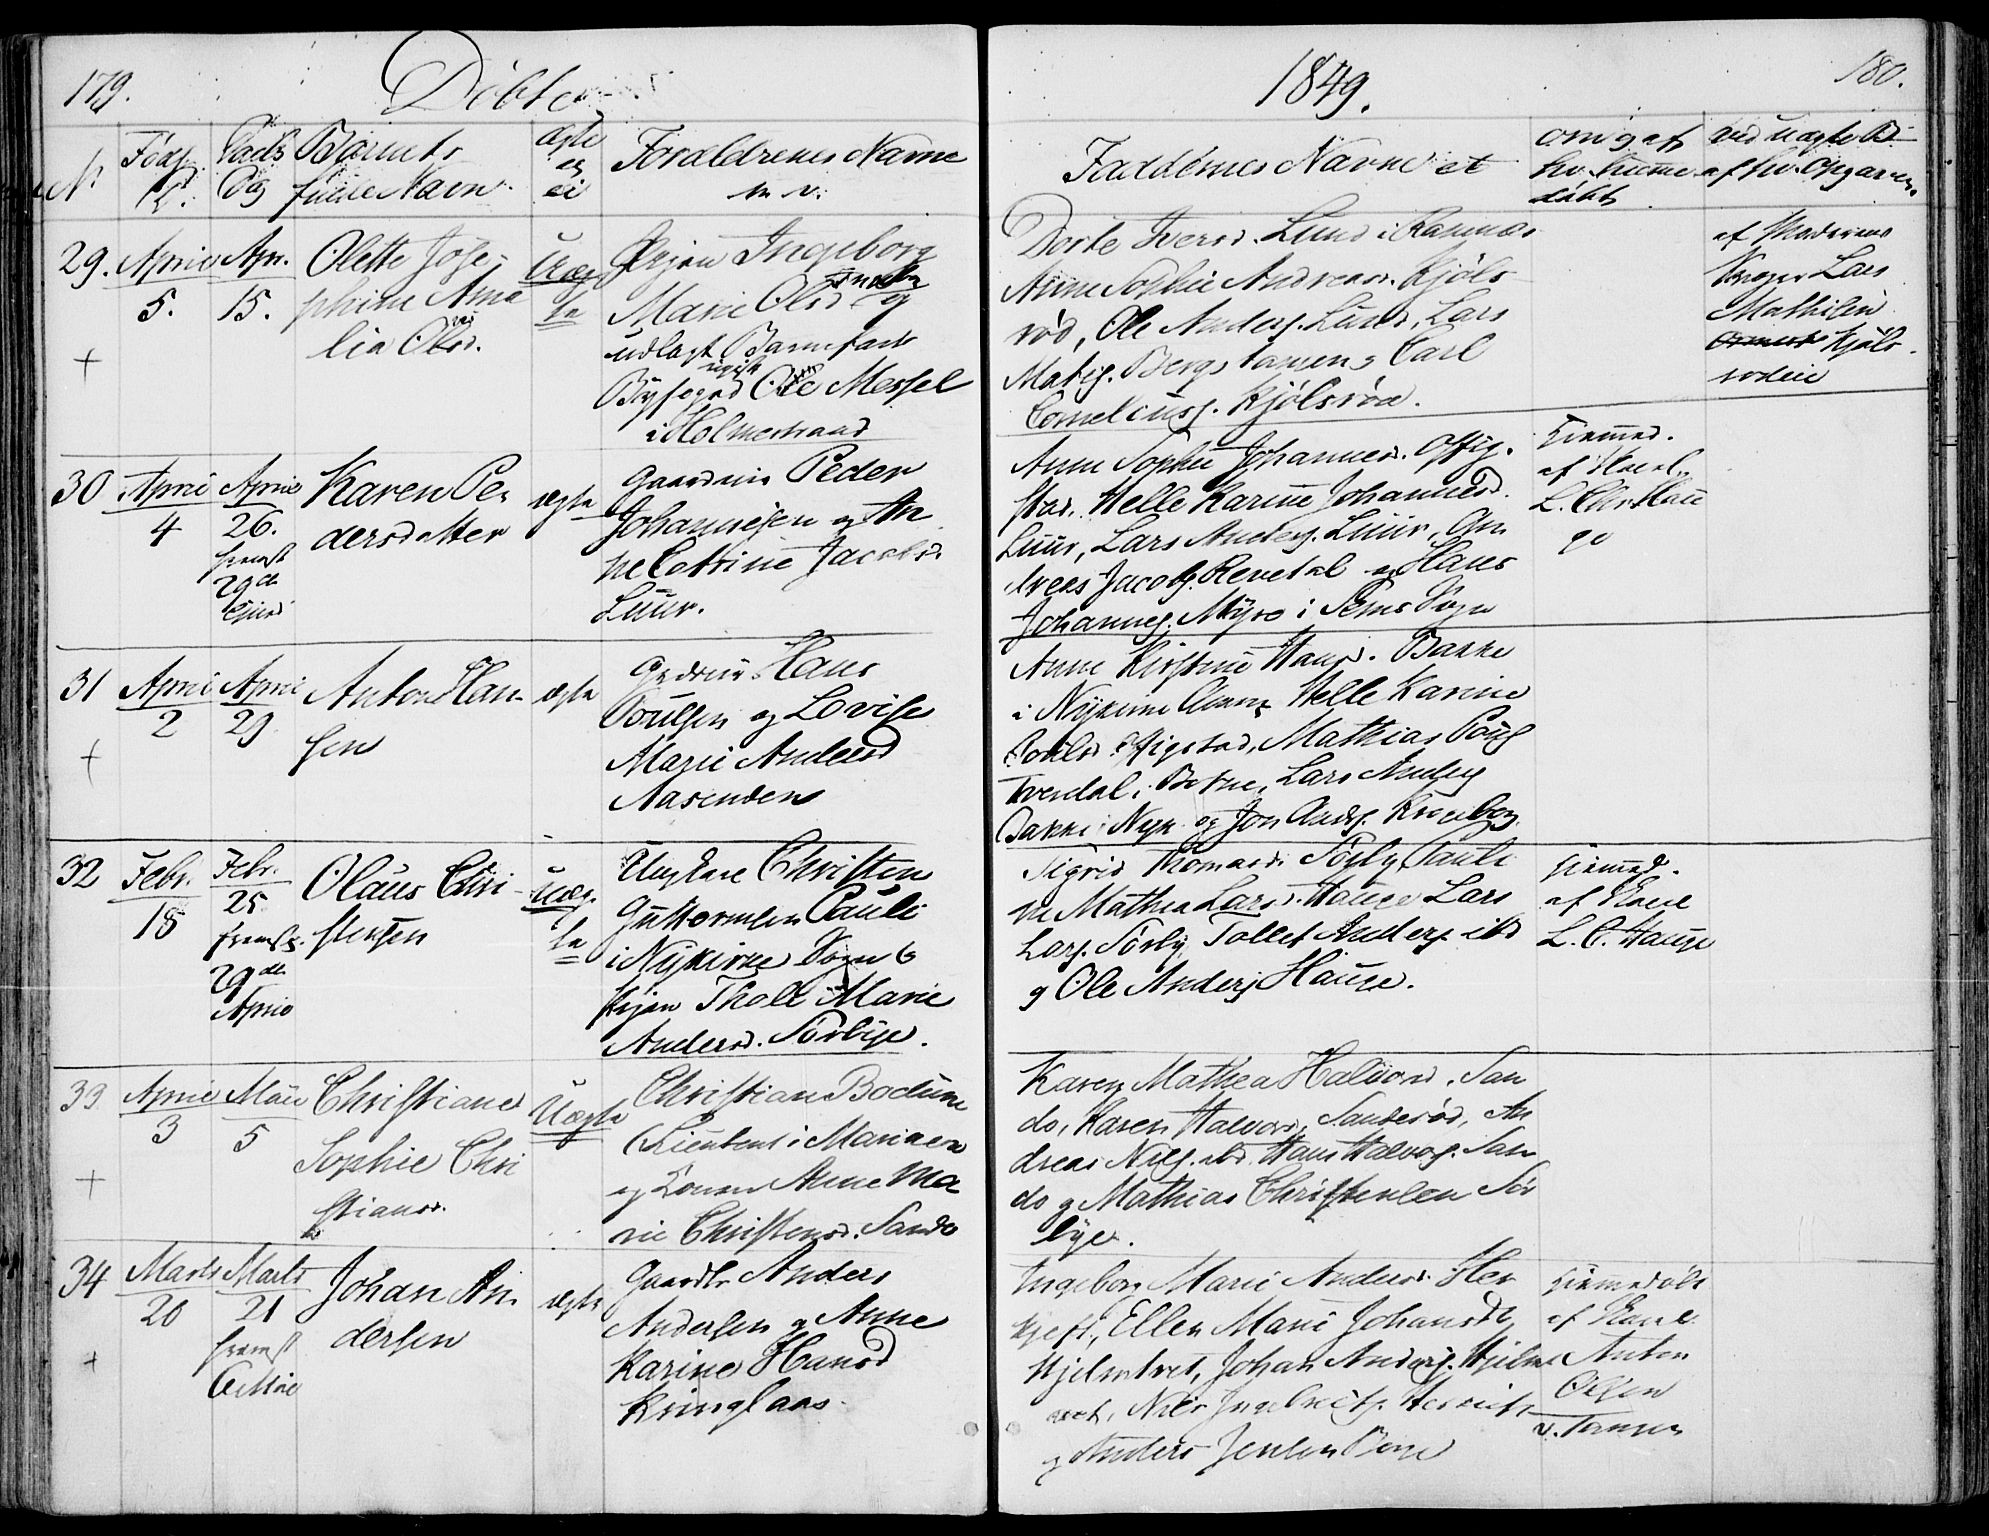 179.
Döbte
1849.
180.
N.
Föds
D.
Daabs
Dag
Barnets
fulde Navn
ægte
eg
ei
Forældrenes Navne
m. v.
Faddernes Navne
om og af
hv. hieme
döbt
ved uægte B
af hv. Opgaven
29.
April
5.
Apr.
15.
Olette Jose-
phine Ama
lia Olsd.
Uæg
te
Pigen Ingeborg
Marie Olsd. og
udlagt Barnefader
Ole Messel
i Holmestrand
Dorte Iversd. Lund i Ramnæs
Anne Sophie Andreasd. Kjöls
röd, Ole Anders. Lund, Lars
Mats. Bergstangen, Carl
Corneliuss. Kjölsröd.
af Moderens
Lars
Mathisen
Kjöls
rodeie
30
April
4
April
26.
fremst
29de
Karen Pe
dersdatter
ægte
Gaardm Peder
Johannesen og An
ne Catrine Jacobsd
Luur.
Anne Sophie Johannesd. Offig
stad. Helle Karine Johannesd.
Luur, Lars Anders. Luur, An
dreas Jacobs. Revetal og Hans
Johannes. Myre i Sems Sogn
hjemmed.
af
L. Chr Hau
ge
31
April
2
April
29
Anton Han
sen
ægte
Hans
Poulsen og Lovise
Marie Andersd
Aasenden
Anne Kirstine Hansd. Bakke
i Nykirke Helle Karine
Poulsd. Offigstad, Mathias Pouls
Tverdal i Botne, Lars Anders
Bakke i Nyk. og Jon Anders.
32
Febr.
18
Febr.
25
fremst.
29de
April
Olaus Chri
stensen
Uæg
te
Ungkarl Christen
Guttormsen Pauli
i Nykirke Sogn &
Pigen Tholl Marie
Andersd. Sörbye.
Sigrid Thomasd. Sörby, Pauli
ne Mathea Larsd. Hauge Lars
Lars. Sörby, Tollef Anders. ibd
og Ole Anders Hauge.
hjemmed.
af
L. C. Hauge
33.
April
3
Mai
5
Christiane
Sophie Chri
stiansd.
Uægte
Christian Bodum
(Lieutent i Marinen
og Anne Ma
rie Christensd. Sande
Karen Mathea Halvorsd. San
de, Karen Halvorsd. Sanderöd, An
dreas Niels. ibd. Hans Halvors. San
de og Mathias Christensen Sör
bye.
34
Marts
20
Marts
21
fremst
6 Mai
Johan An
dersen
ægte
Gaardbr Anders
Andersen og Anne
Karine Hansd
Kringlaas
Ingeborg Marie Andersd. Her
Ellen Marie Johansdt
Hjelmtvet, Johan Anders. Hjelm
tvet, Niels
og Anders Jensen Berge
hjemmedöbt
af
Anton
Olsen